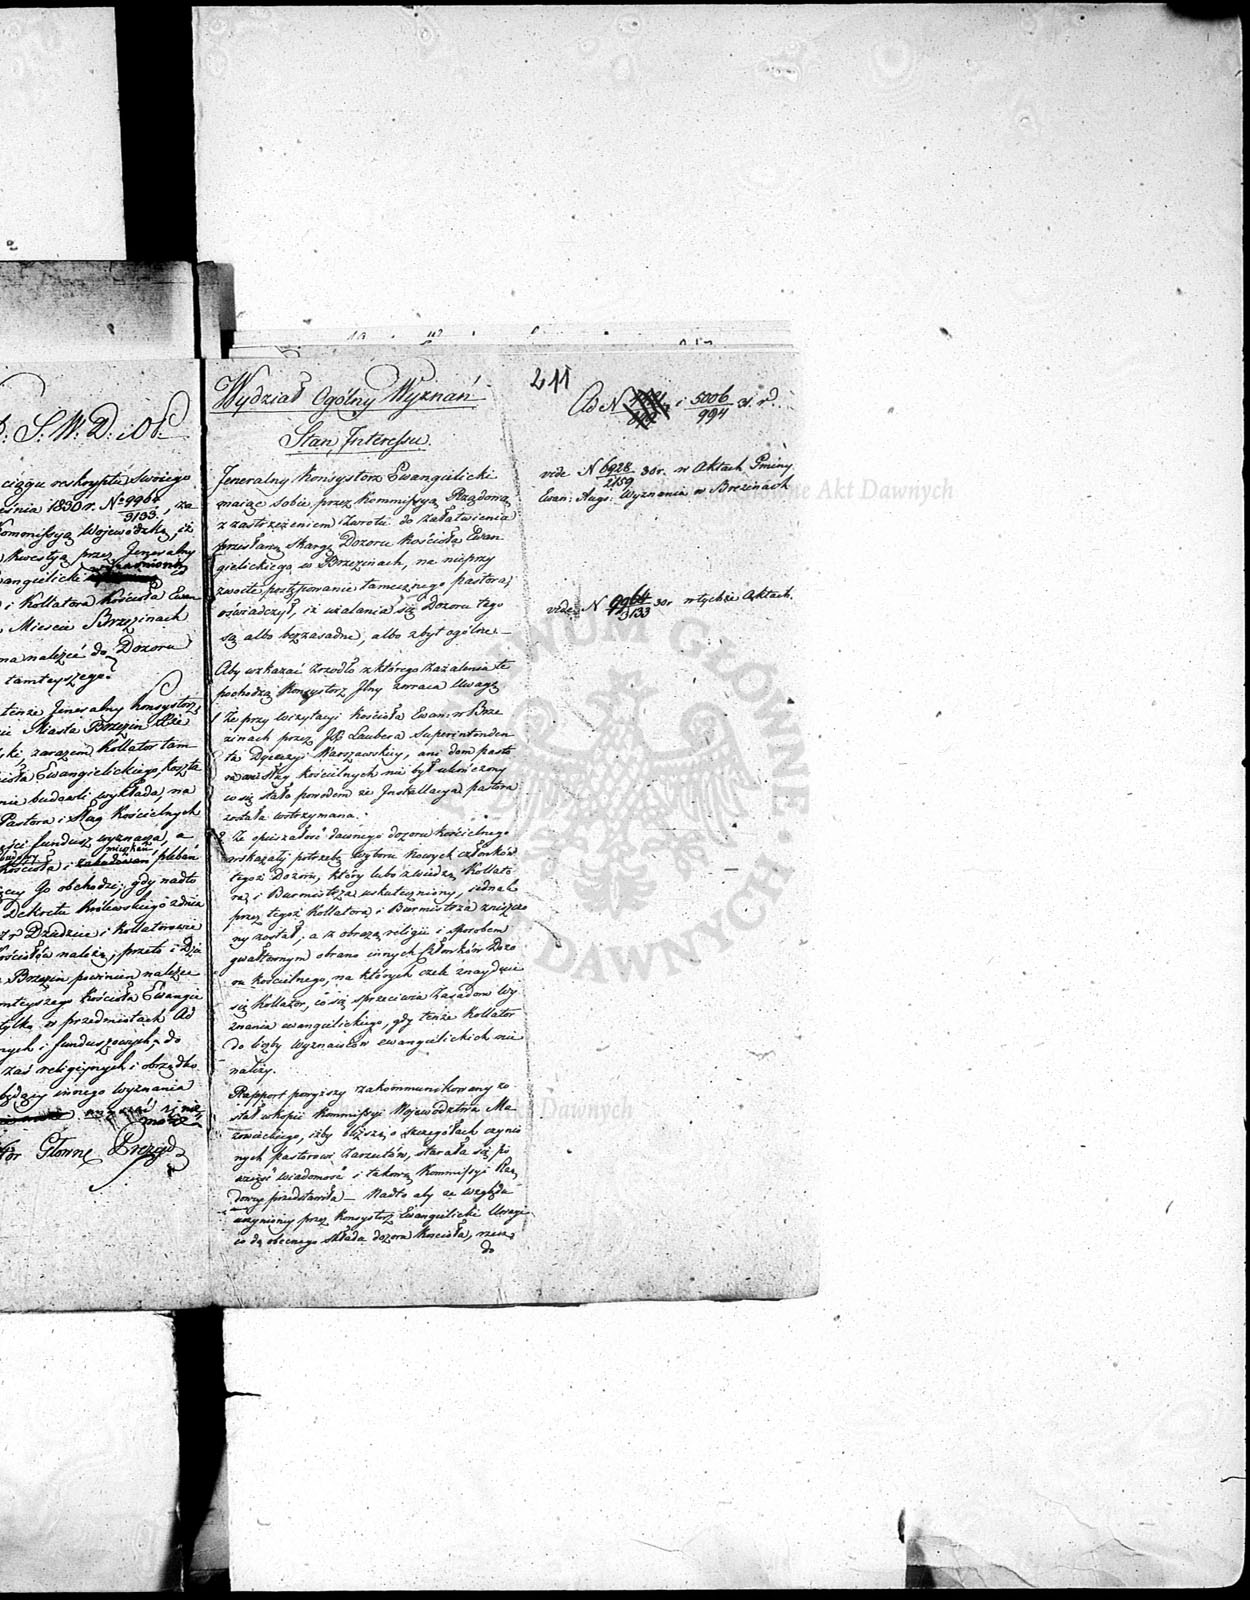 S. W. D. i OP.
ciągu reskryptu swoiego
śnia 1830 r. No 9964/3133, za
Kommissyą Wojewódzką, iż
kwestyą przez Jeneralny
wangelicki co
i Kollatora Kościoła Ewan
Mieście Brzezinach
ma należeć do Dozoru
tamteyszego.
tenże Jeneralny Konsystorz
Miasta Brzezin
ski, zarazem Kollator tam
ścioła Ewangelickiego, koszta
nie budowli wykłada, na
Pastora i Sług Kościelnych
fundusz wyznacza, a
mieszkań
Kościoła i pleban
Go obchodzi; gdy nadto
Dekretu Królewskiego z dnia
Dziedzice i Kollatorowie
Kościołów należą; przeto i Dzie
Brzezin powinien należeć
tamteyszego Kościoła Ewange
tylko w przedmiotach Ad
nych i funduszowych, do
zaś religiynych i obrządko
będący innego wyznania
może
Główny Prezyd
Wydział Ogólny Wyznań
Stan Interessu.
Jeneralny Konsystorz Ewangelicki
maiąc sobie przez Kommissyą Rządową
z zastrzeżeniem zwrotu do załatwienia
przesłaną Skargę Dozoru Kościoła Ewan
gielickiego w Brzezinach, na nieprzy
zwoite postępowanie tamecznego pastora,
oświadczył, iż użalania się Dozoru tego
są albo bezzasadne, albo zbyt ogólne. —
Aby wskazać zrzódło z którego zażalenia te
pochodzą Konsystorz Jlny zwraca Uwagę
1 Że przy wizytacyi Kościoła Ewan: w Brze
zinach przez JX Laubera Superintenden
ta Dyecezyi Warszawskiey, ani dom pasto
ra kościelnych nie był ukończony
co się stało powodem że Installacya pastora
została wstrzymana.
2 Że opieszałość dawnego dozoru kościelnego
wskazały potrzebę wyboru nowych członków
tegoż Dozoru, który lubo z wiedzą Kollato
ra i Burmistrza uskuteczniony, jednak
przez tegoż Kollatora i Burmistrza zniszczo
ny został, a z obrazą religii i sposobem
gwałtownym obrano innych Członków Dozo
ru kościelnego, na których czele znayduie
się Kollator, co się sprzeciwia Zasadom Wy
znania ewangielickiego, gdy tenże Kollator
do liczby wyznawców ewangielickich nie
należy.
Rapport powyższy zakommunikowany zo
stał w kopii Kommissyi Województwa Ma
zowieckiego, iżby bliższą o szczegółach czynio
nych pastorowi zarzutów, starała się po
wziąść wiadomość i takową Kommissyi Rzą
dowey przedstawiła — Nadto aby ze względu
uczynioney przez Konsystorz Ewangelicki Uwagi
co do obecnego składu dozoru Kościoła, rzecz
do
211
Ad N i 5006/994 31 r.
vide N 6928/2159 30 r. w Aktach Gminy
Ewan: Augs: Wyznania w Brzezinach
vide N 9964/3133 30 r w tychże Aktach.
Archiwum Główne Akt Dawnych
ARCHIWUM GŁÓWNE AKT DAWNYCH
Archiwum Główne Akt Dawnych